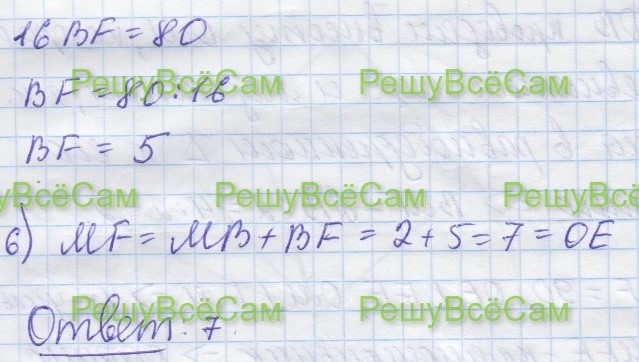 16 BF = 80
BF = 80 : 16
РешуВсёСам РешуВсёСам
BF = 5
РешуВсёСам РешуВсёСам РешуВсёСам
6) MF = MB + BF = 2 + 5 = 7 = OE
РешуВсёСам РешуВсёСам
Ответ: 7.